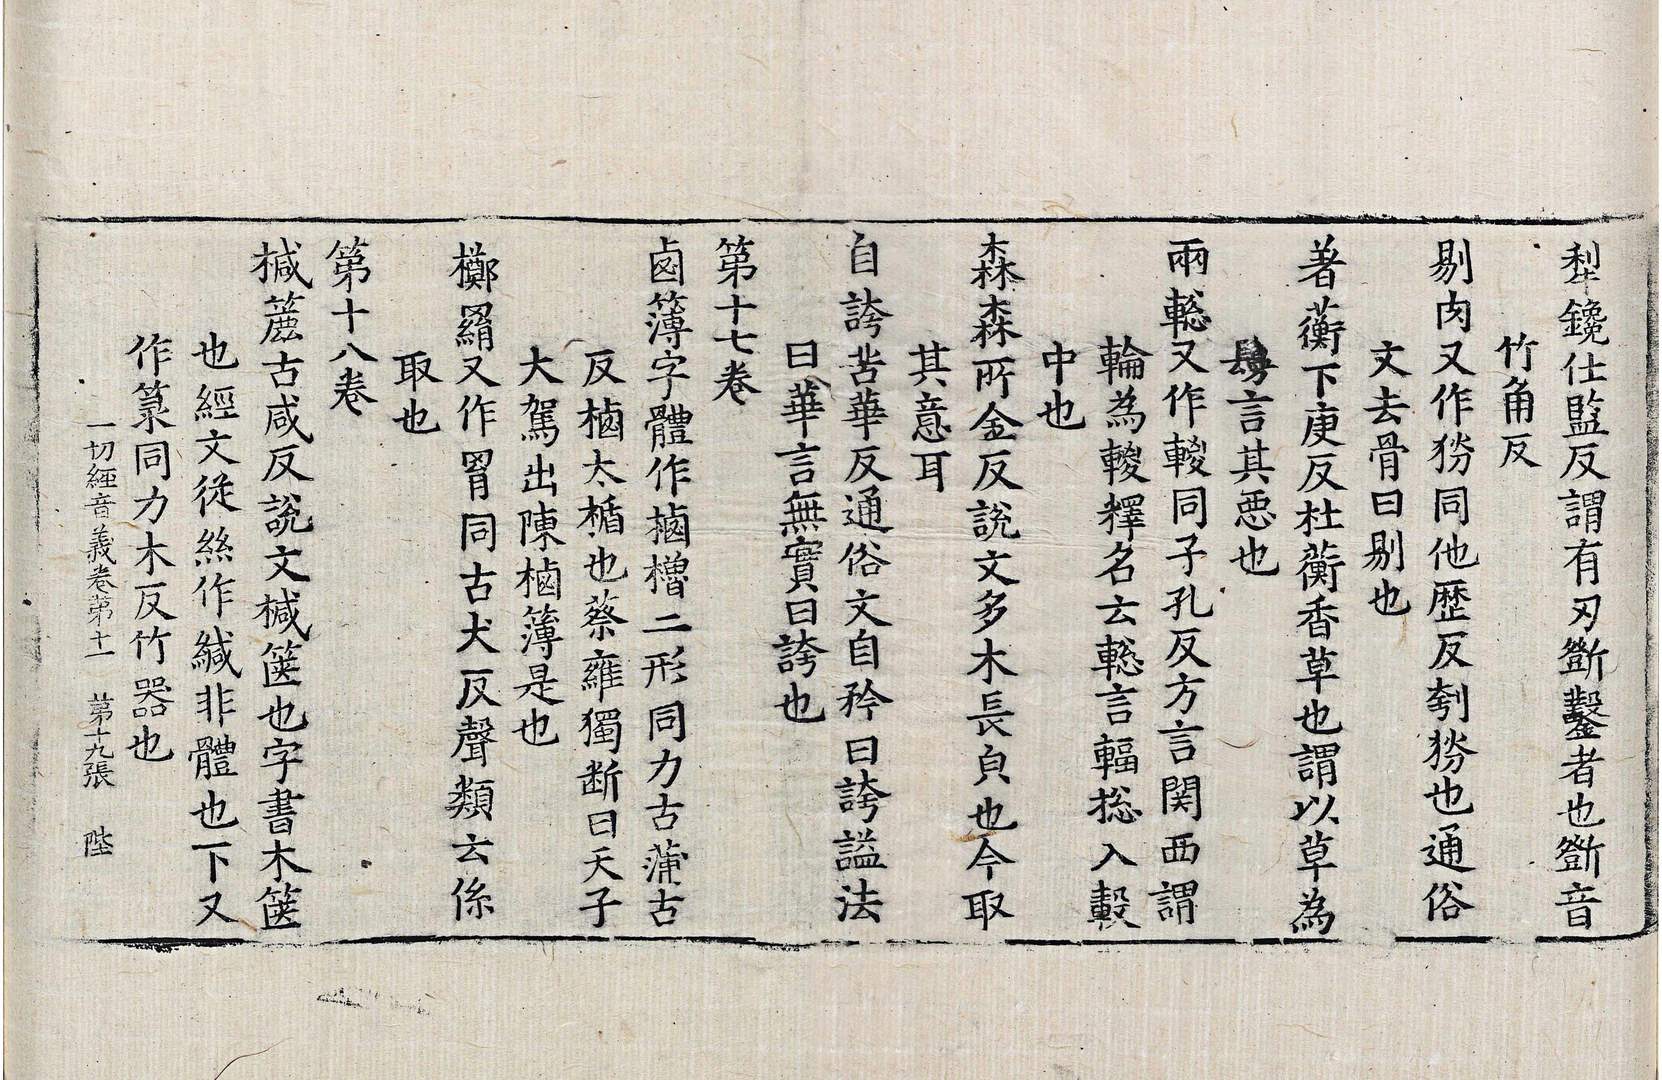 犁鑱仕監反謂有刃斵鑿者也斵音
竹角反
剔肉又作㔸同他歷反剞㔸也通俗
文去骨曰剔也
著蘅下庚反杜蘅香草也謂以草為
言其惡也
兩轊又作輚同子孔反方言関西謂
輪為輚釋名云轊言輻揔入轂
中也
森森所金反說文多木長皃也今取
其意耳
自誇苦華反通俗文自矜曰誇謚法
曰華言無實曰誇也
第十七卷
鹵簿字體作樐櫓二形同力古蒲古
反樐大楯也蔡雍獨断曰天子
大駕出陳樐簿是也
擲羂又作罥同古犬反聲類云係
取也
第十八卷
椷簏古咸反說文椷篋也字書木篋
也經文從絲作緘非體也下又
作箓同力木反竹器也
一切經音義卷第十一　第十九張　陛